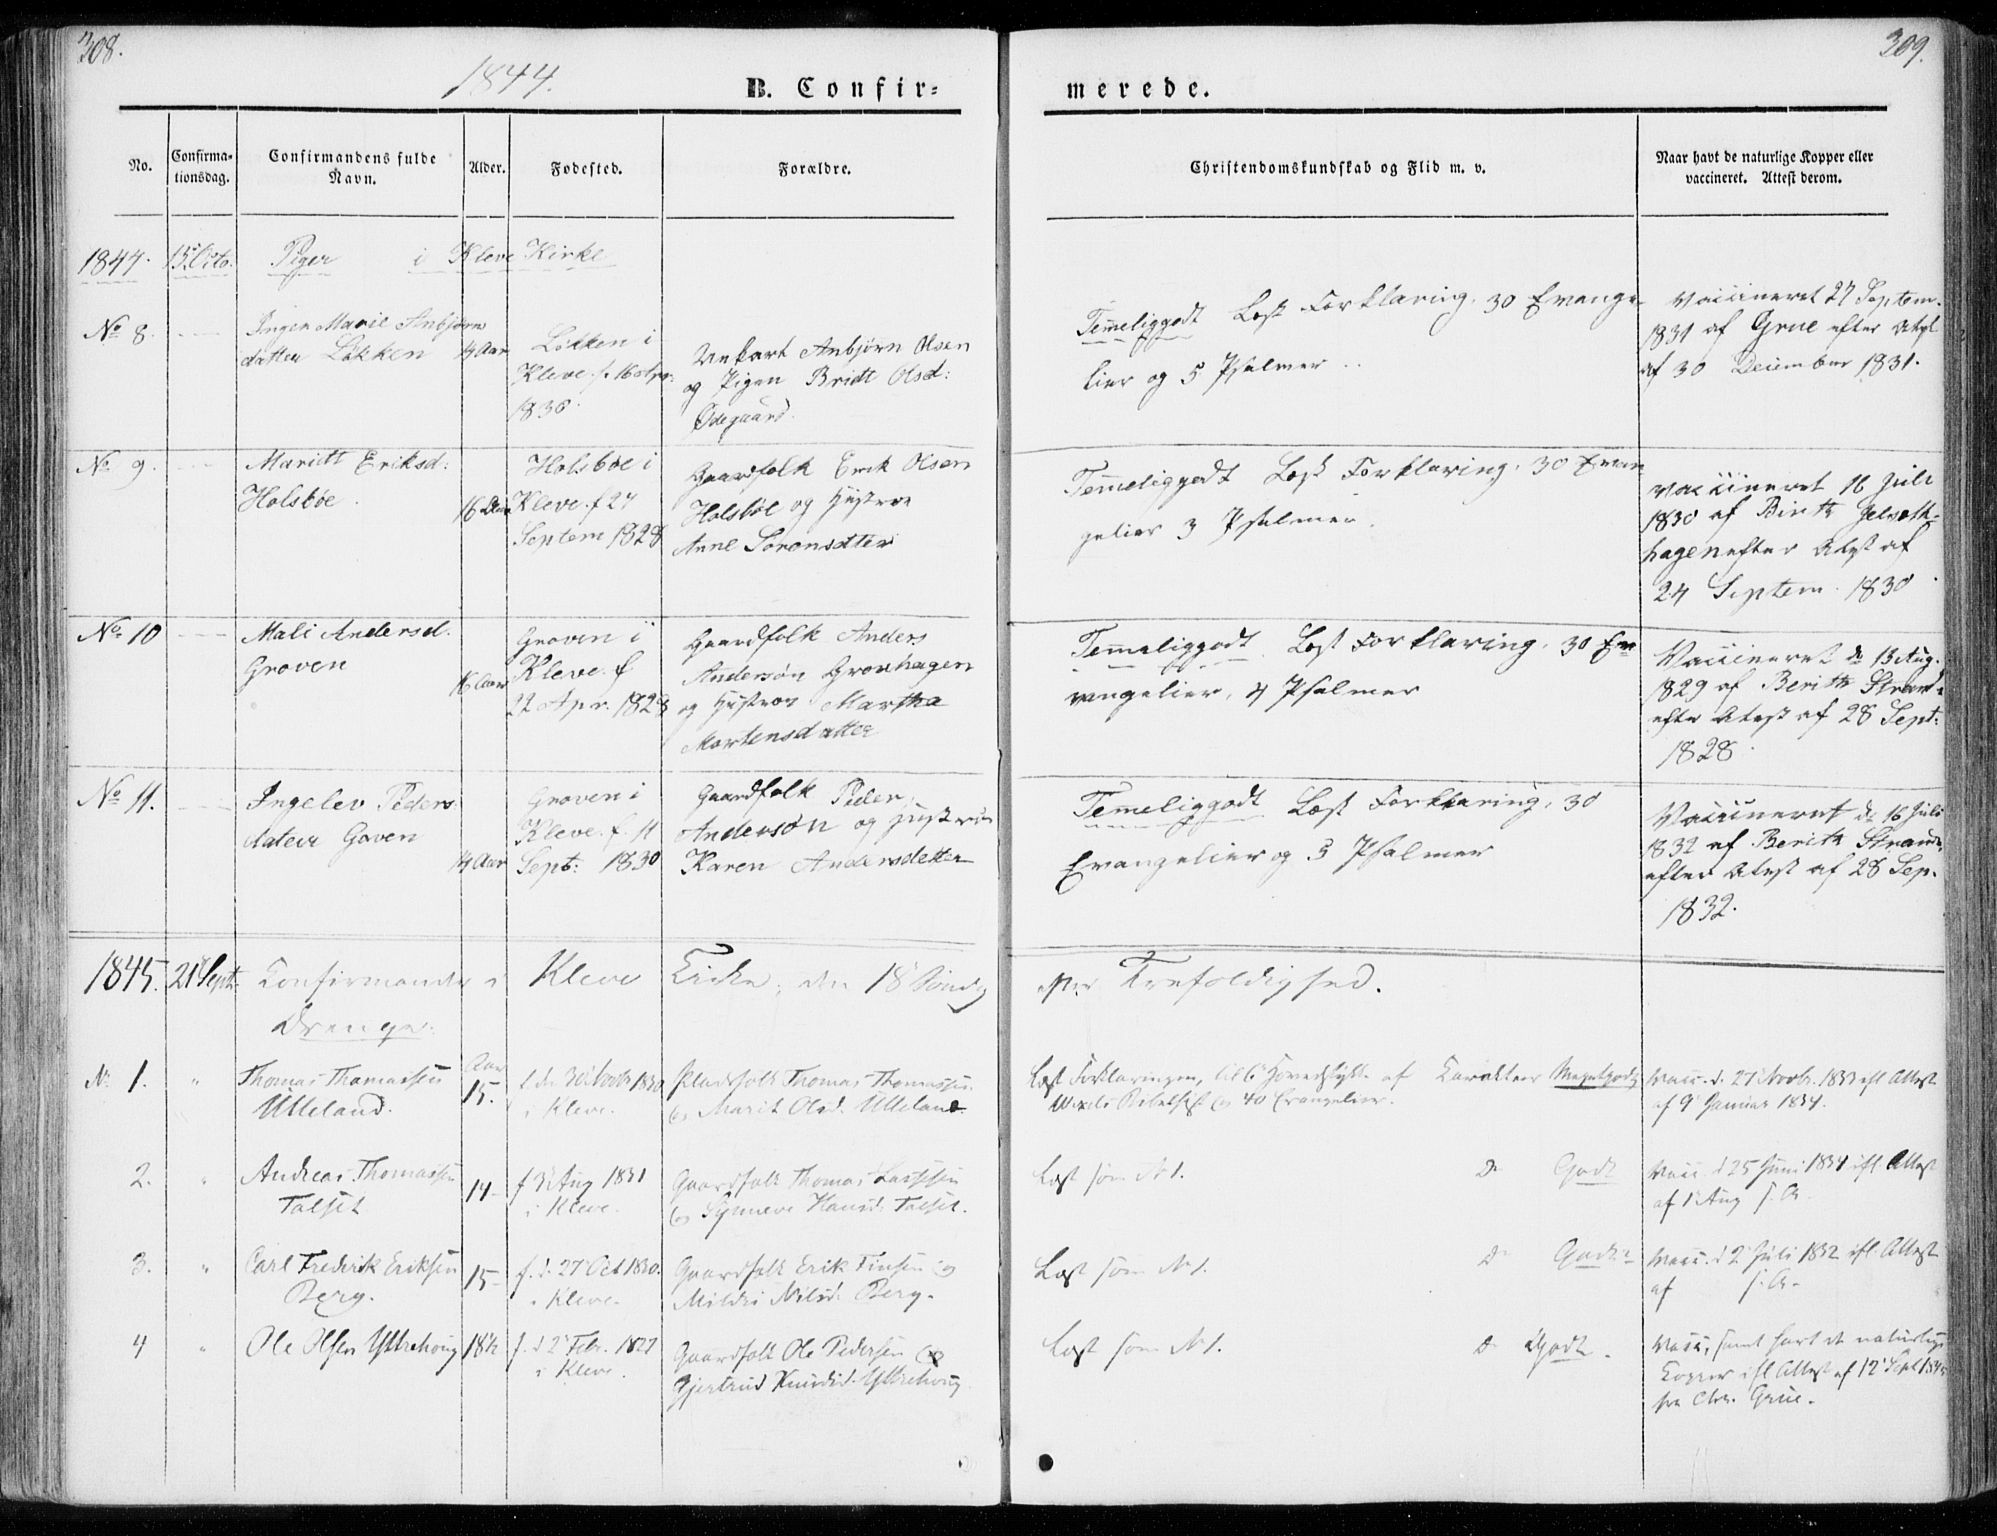 308.
309.
1844.
B. Confir=
merede.
No.
Confirma=
tionsdag.
Confirmandens fulde
Navn.
Alder.
Fødested.
Forældre.
Christendomskundskab og Flid m. v.
Naar havt de naturlige Kopper eller
vaccineret. Attest derom.
1844. 15 Octo. Piger i Kleve Kirke
No 8.
Inger Marie Anbjørns
datter Løkken
14 Aar
Løkken i
Kleve. f. 16 Apr:
1830.
Unkart Anbjørn Olsen
og Pigen Bridt Olsd:
Ødegaard.
Temeliggodt Læst Forklaring. 30 Evange
lier og 5 Psalmer
Vaccineret 27 Septem.
1831 af Grue efter Atest
af 30 December 1831.
No 9.
Maridt Eriksd:
Holsbøe.
16 Aar
Holsbøe i
Kleve. f 27
Septem 1828
Gaardfolk Erik Olsen
Holsbøe og Hustroe
Anne Sørensdtter
Temeliggodt Læst Forklaring. 30 Evan
gelier 3 Psalmer.
Vaccineret 16 Juli
1830 af Birith Jelseth=
hagen efter Atest af
24 Septem. 1830
No 10
Mali Andersd.
Groven
16 Aar
Groven i
Kleve. f.
22 Apr. 1828
Gaardfolk Anders
Andersøn Grovhagen
og Hustroe Martha
Mortensdatter
Temeliggodt Læst Forklaring. 30 Ev
vangelier, 4 Psalmer
Vaccineret d 13 Aug.
1829 af Berith Strand
efter Atest af 28 Sept:
1828.
No 11.
Ingelev Peders
datter Goven
14 Aar
Groven i
Kleve. f. 11
Sept: 1830
Gaardfolk Peder
Andersøn og Hustroe
Karen Andersdetter
Temeliggodt Læst Forklaring. 30
Evangelier og 3 Psalmer
Vaccineret d 16 Juli
1832 af Berith Strand
efter Atest af 28 Sep.
1832.
1845. 21 Sept. Confirmander i Kleve Kirke, den 18 Søndag efter Trefoldighed.
Drenge.
No 1. "
Thomas Thomassen
Ulleland.
Aar
15.
f. d. 30 Novbr 1830
i Kleve.
Pladsfolk Thomas Thomassen
og Marit Olsd. Ulleland
Læst Forklaringen, til 6 Hovedstykke af
Wexels Bibelhist og 40 Evangelier.
Karakter Megetgodt
Vacc. d. 27 Novbr. 1833 ifl Attest
af 9 Januar 1834.
2. "
Andreas Thomassen
Talset
14
f 3 Aug 1831
i Kleve.
Gaardfolk Thomas Larssen
og Synneve Hansd. Talset.
Læst som N 1.
Do Godt
Vacc. d 25 Juni 1834 ifl. Attest
af 1 Aug s. A.
3. "
Carl Frederik Eriksen
Berg.
15
f. d. 27 Oct 1830.
i Kleve.
Gaardfolk Erik Finsen og
Mildri Nilsd. Berg.
Læst som N 1.
Do Godt
Vacc. d 2 Juli 1832 ifl. Attest
af s. A.
4 "
Ole Olsen Ystrehoug
18½
f. d 2 Febr. 1827
i Kleve.
Gaardfolk Ole Pedersen og
Gjertrud Knudsd. Ystrehoug.
Læst som N 1.
Do Godt.
Vacc, samt havt de naturlige
Kopper ifl Attest af 12 Sept 1845
fra Chr. Grue.